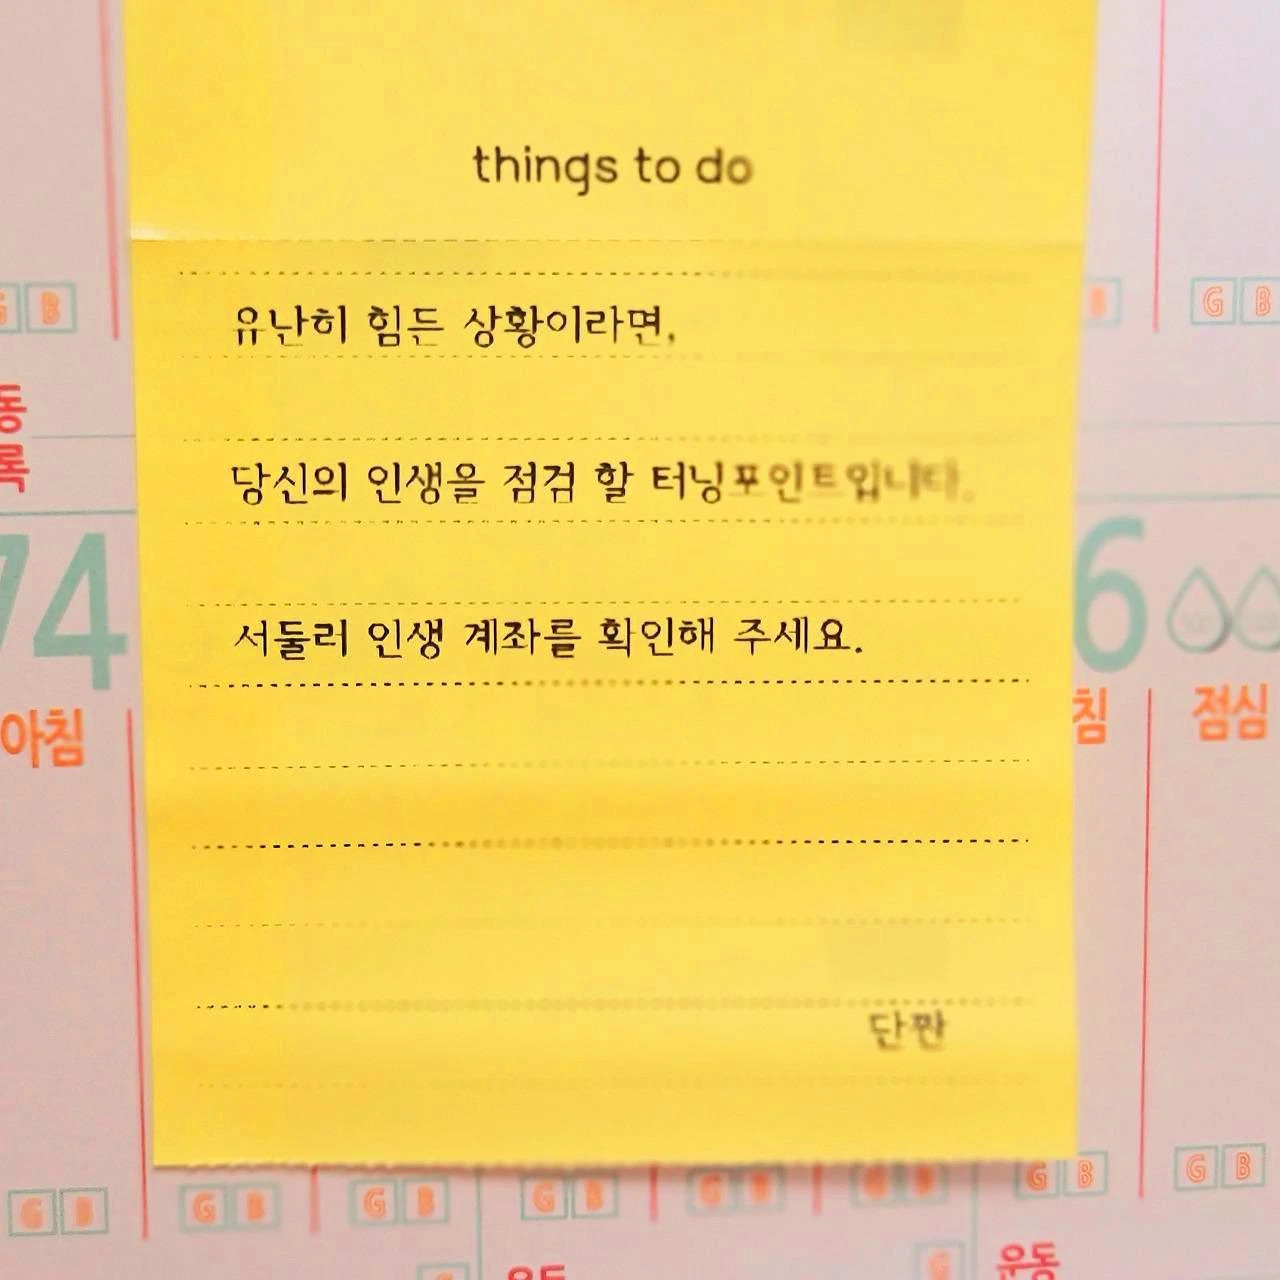 things to do
유난히 힘든 상황이라면,
당신의 인생을 점검 할 터닝포인트입니다.
서둘러 인생 계좌를 확인해 주세요.
단짠
G B
B
G B
동
록
74
6
아침
침
점심
G B
G B
G B
G B
G B
G B
G B
G B
G
운동
운동